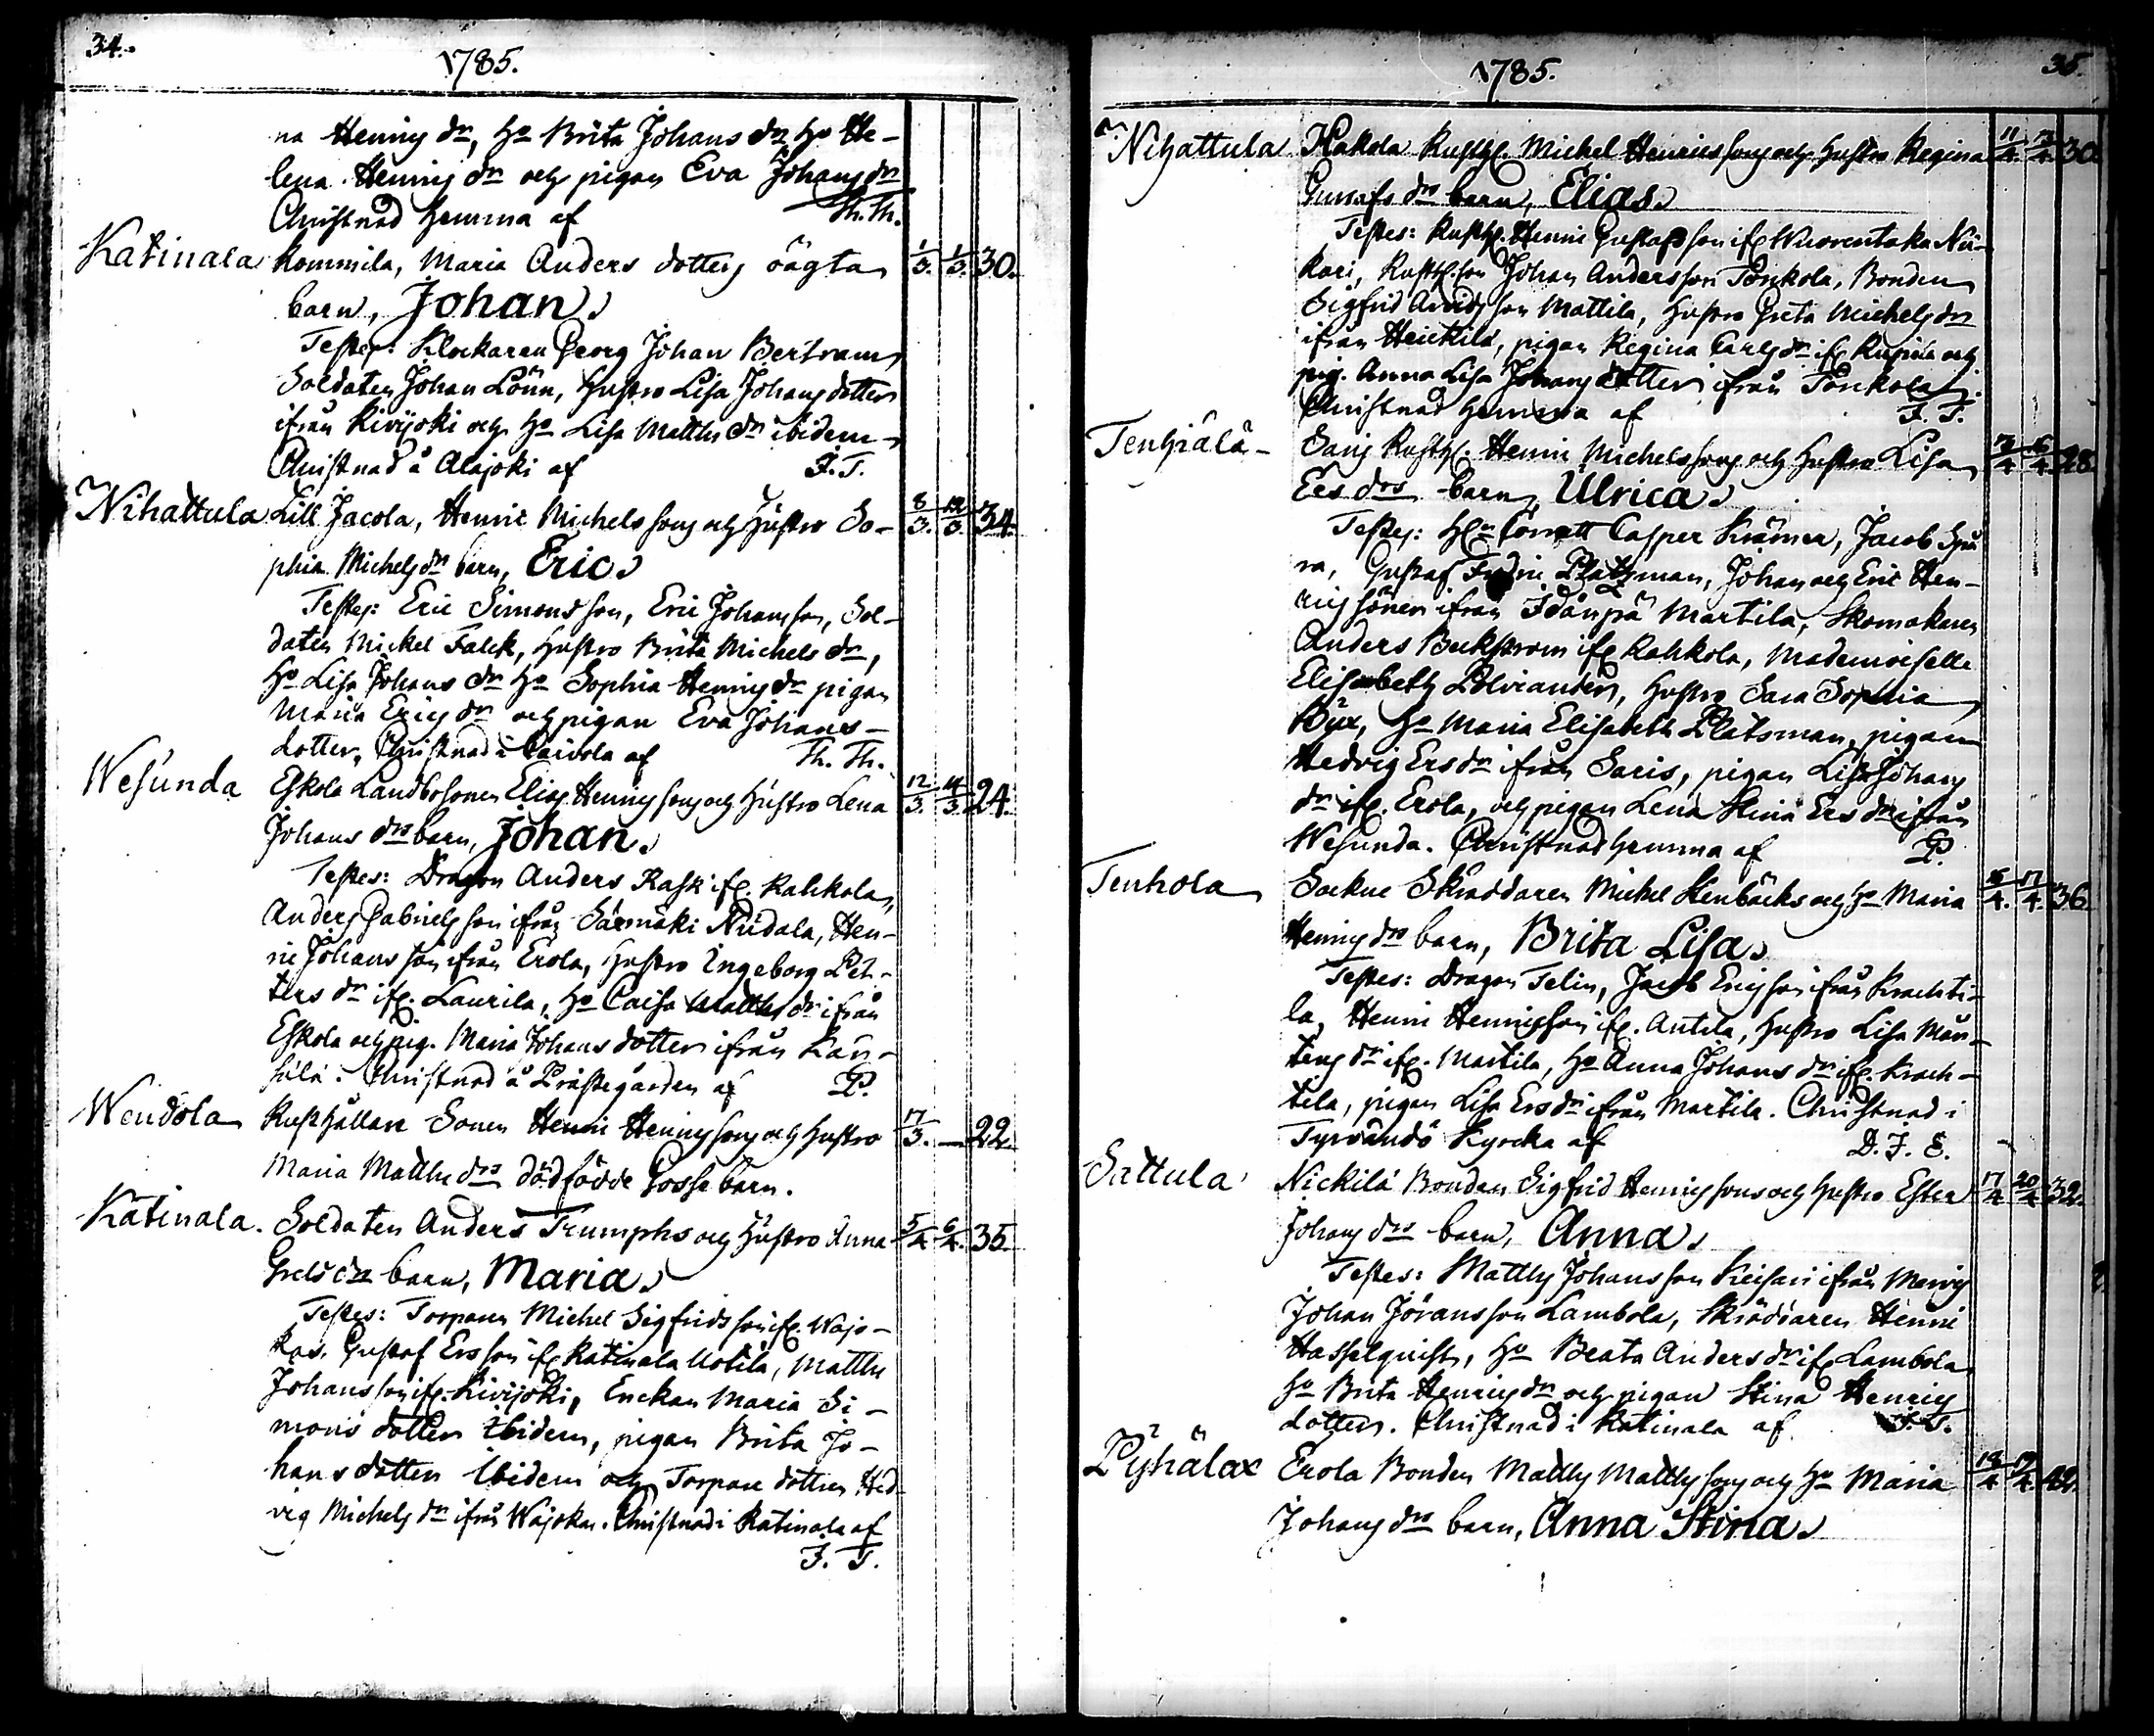 34.
1785.
na Henrics dr, Ho Brita Johans dr Ho He-
lena Henrics dr och pigan Eva Johans dr
Christnad hemma af Th. Th.
Katinala Kommila, Maria Anders dotters oägta 1/3. 1/3. 30.
barn, Johan.
Testes: Klockaren Georg Johan Bertram,
Soldaten Johan Lönn, Hustro Lisa Johans dotter
ifrån Kivijoki och Ho Lisa Matths dr ibidem
Christnad å Alajoki af F. T.
Nihattula Lill Jacola, Henric Michelssons och Hustro So- 8/3. 12/3. 34.
phia Michels drs barn, Eric.
Testes: Eric Simonsson, Eric Johansson, Sol-
daten Mickel Falck, Hustro Brita Michels dr,
Ho Lisa Johans dr Ho Sophia Henrics dr pigan
Maria Erics dr och pigan Eva Johans-
dotter, Christnad i Caivola af Th. Th.
Wesunda Eskola Landbosonen Elias Henricssons och Hustro Lena 12/3. 14/3. 24.
Johans drs barn, Johan.
Testes: Dragon Anders Rask ifr. Kahkola,
Anders Gabrielsson ifrån Särmäki Nudala, Hen-
ric Johansson ifrån Erola, Hustro Ingeborg Pet-
ters dr ifr. Laurila, Ho Caisa Matths dr ifrån
Eskola och pig. Maria Johans dotter ifrån Kan-
sula. Christnad å Prästegården af P.
Wendola Rusthållare Sonen Henric Henricssons och Hustro 17/3. — 22.
Maria Matths drs dödfödde Gossebarn.
Katinala. Soldaten Anders Trumphs och Hustro Anna 5/4 6/4. 35.
Grels drs barn, Maria.
Testes: Torparen Michel Sigfridsson ifr. Wajo-
kas, Gustaf Ersson ifr Katinala Uotila, Matths
Johansson ifr. Kivijoki, Enckan Maria Si-
mons dotter ibidem, pigan Brita Jo-
hans dotter ibidem och Torpare dotter Hed-
vig Michels dr ifrån Wajokas. Christnad i Katinala af
F. T.
1785. 35.
Nihattula Hakola Rusth. Michel Henricssons och Hustro Regina 11/4 13/4 30
Gustafs drs barn, Elias.
Testes: Rusth. Henric Gustafsson ifr Wuorentaka Nii-
kari, Rusth. son Johan Andersson Tonkola, Bonden
Sigfrid Arvidsson Mattila, Hustro Greta Michels dr
ifrån Heickilä, pigan Regina Carls dr ifr Kupiala och
pig. Anna Lisa Johans dotter ifrån Tonkola.
Christnad hemma af F. T.
Tenhiälä - Saris Rusth. Henric Michelssons och Hustro Lisa 13/4 16/4 28
Ers drs barn, Ulrica.
Testes: Hr Cornett Casper Krämer, Jacob Spå
ra, Gustaf Fredric Platzman, Johan och Eric Hen-
rics söner ifrån Idänpä Martila, Skomakaren
Anders Beckstrom ifr Kahkola, Mademoiselle
Elisabeth Polviander, Hustro Sara Sophia
Büx, Ho Maria Elisabeth Platsman, pigan
Hedvig Ers dr ifrån Saris, pigan Lisa Johans
dr ifr. Erola, och pigan Lena Stina Ers dr ifrån
Wesunda. Christnad hemma af P.
Tenhola Sockne Skräddaren Michel Stenbäcks och Ho Maria 16/4. 17/4. 36.
Henrics drs barn, Brita Lisa.
Testes: Dragon Telin, Jacob Ericsson ifrån Krachti-
la, Henric Henricsson ifr. Antila, Hustro Lisa Mår-
tens dr ifr. Martila, Ho Anna Johans dr ifr. Krach-
tila, pigan Lisa Ers dr ifrån Martila. Christnad i
Tyrvändö Kyrcka af D. J. E.
Sattula Nickilä Bonden Sigfrid Henricssons och Hustro Ester 17/4 20/4 32.
Johans drs barn, Anna.
Testes: Matths Johansson Keisari ifrån Mervis
Johan Jöransson Lambola, Skräddaren Henric
Hasselquist, Ho Beata Anders dr ifr Lambola,
Ho Brita Henrics dr och pigan Stina Henrics
dotter. Christnad i Katinala af F. T.
Pyhälax Erola Bonden Matths Matthssons och Ho Maria 18/4 19/4. 42.
Johans drs barn, Anna Stina.